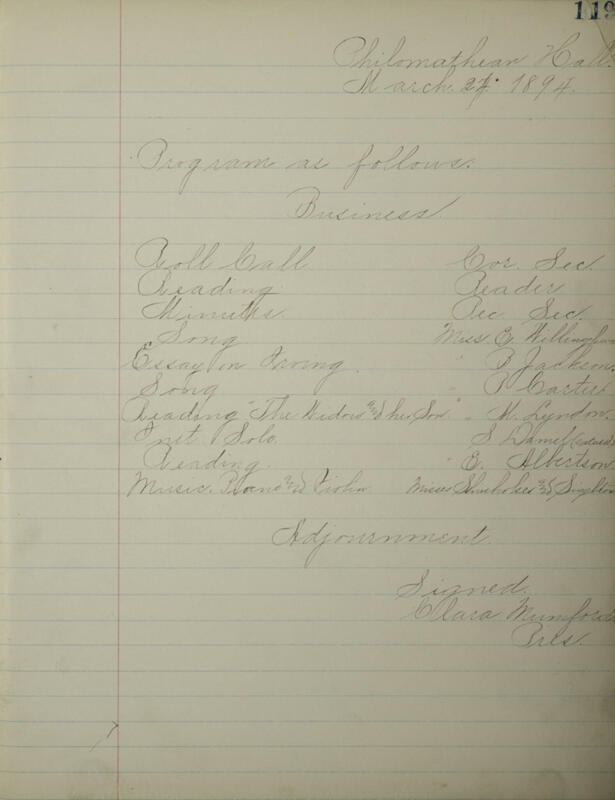 119
Philomathean Hall.
March. 24. 1894.
Program as follows.
Business.
Roll Call Cor. Sec.
Reading Reader
Minutes. Rec. Sec.
Song Miss E. Willingham
Essay on Irving. " B Jackson.
Song " P Carter
Reading "The Widow and her Son" " M. Lyndon.
Inst. Solo. " S Daniel
Reading. " E. Albertson
Music. Piano and Violin Misses and Singleton
Adjournment.
Signed.
Clara Mumford
Pres.